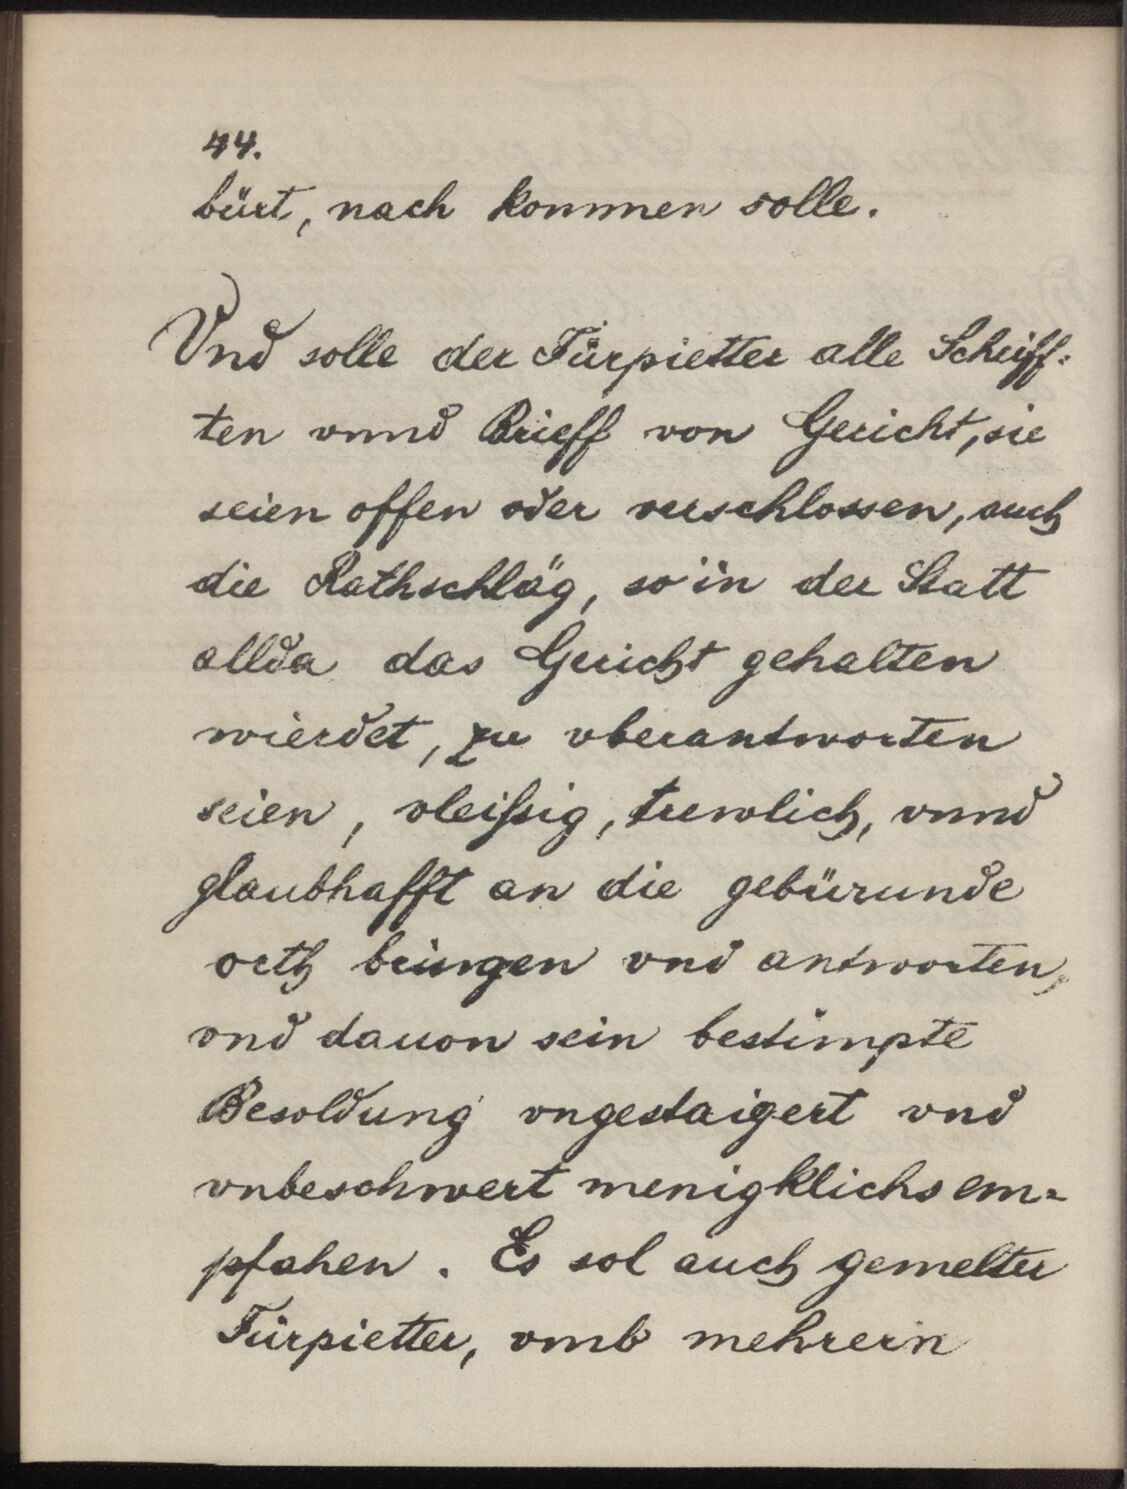 44.
bürt, nach kommen solle.
Vnd solle der Fürpietter alle Schriff=
ten vnnd Brieff von Gericht, sie
seien offen oder verschlossen, auch
die Rathschläg, so in der Statt
allda das Gericht gehalten
wierdet, zu vberantworten
seien, vleißig, trewlich, vnnd
glaubhafft an die gebürunde
orth bringen vnd antworten,
vnd dauon sein bestimpte
Besoldung vngestaigert vnd
vnbeschwert menigklichs em=
pfahen. Es sol auch gemelter
Fürpietter, vmb mehrern